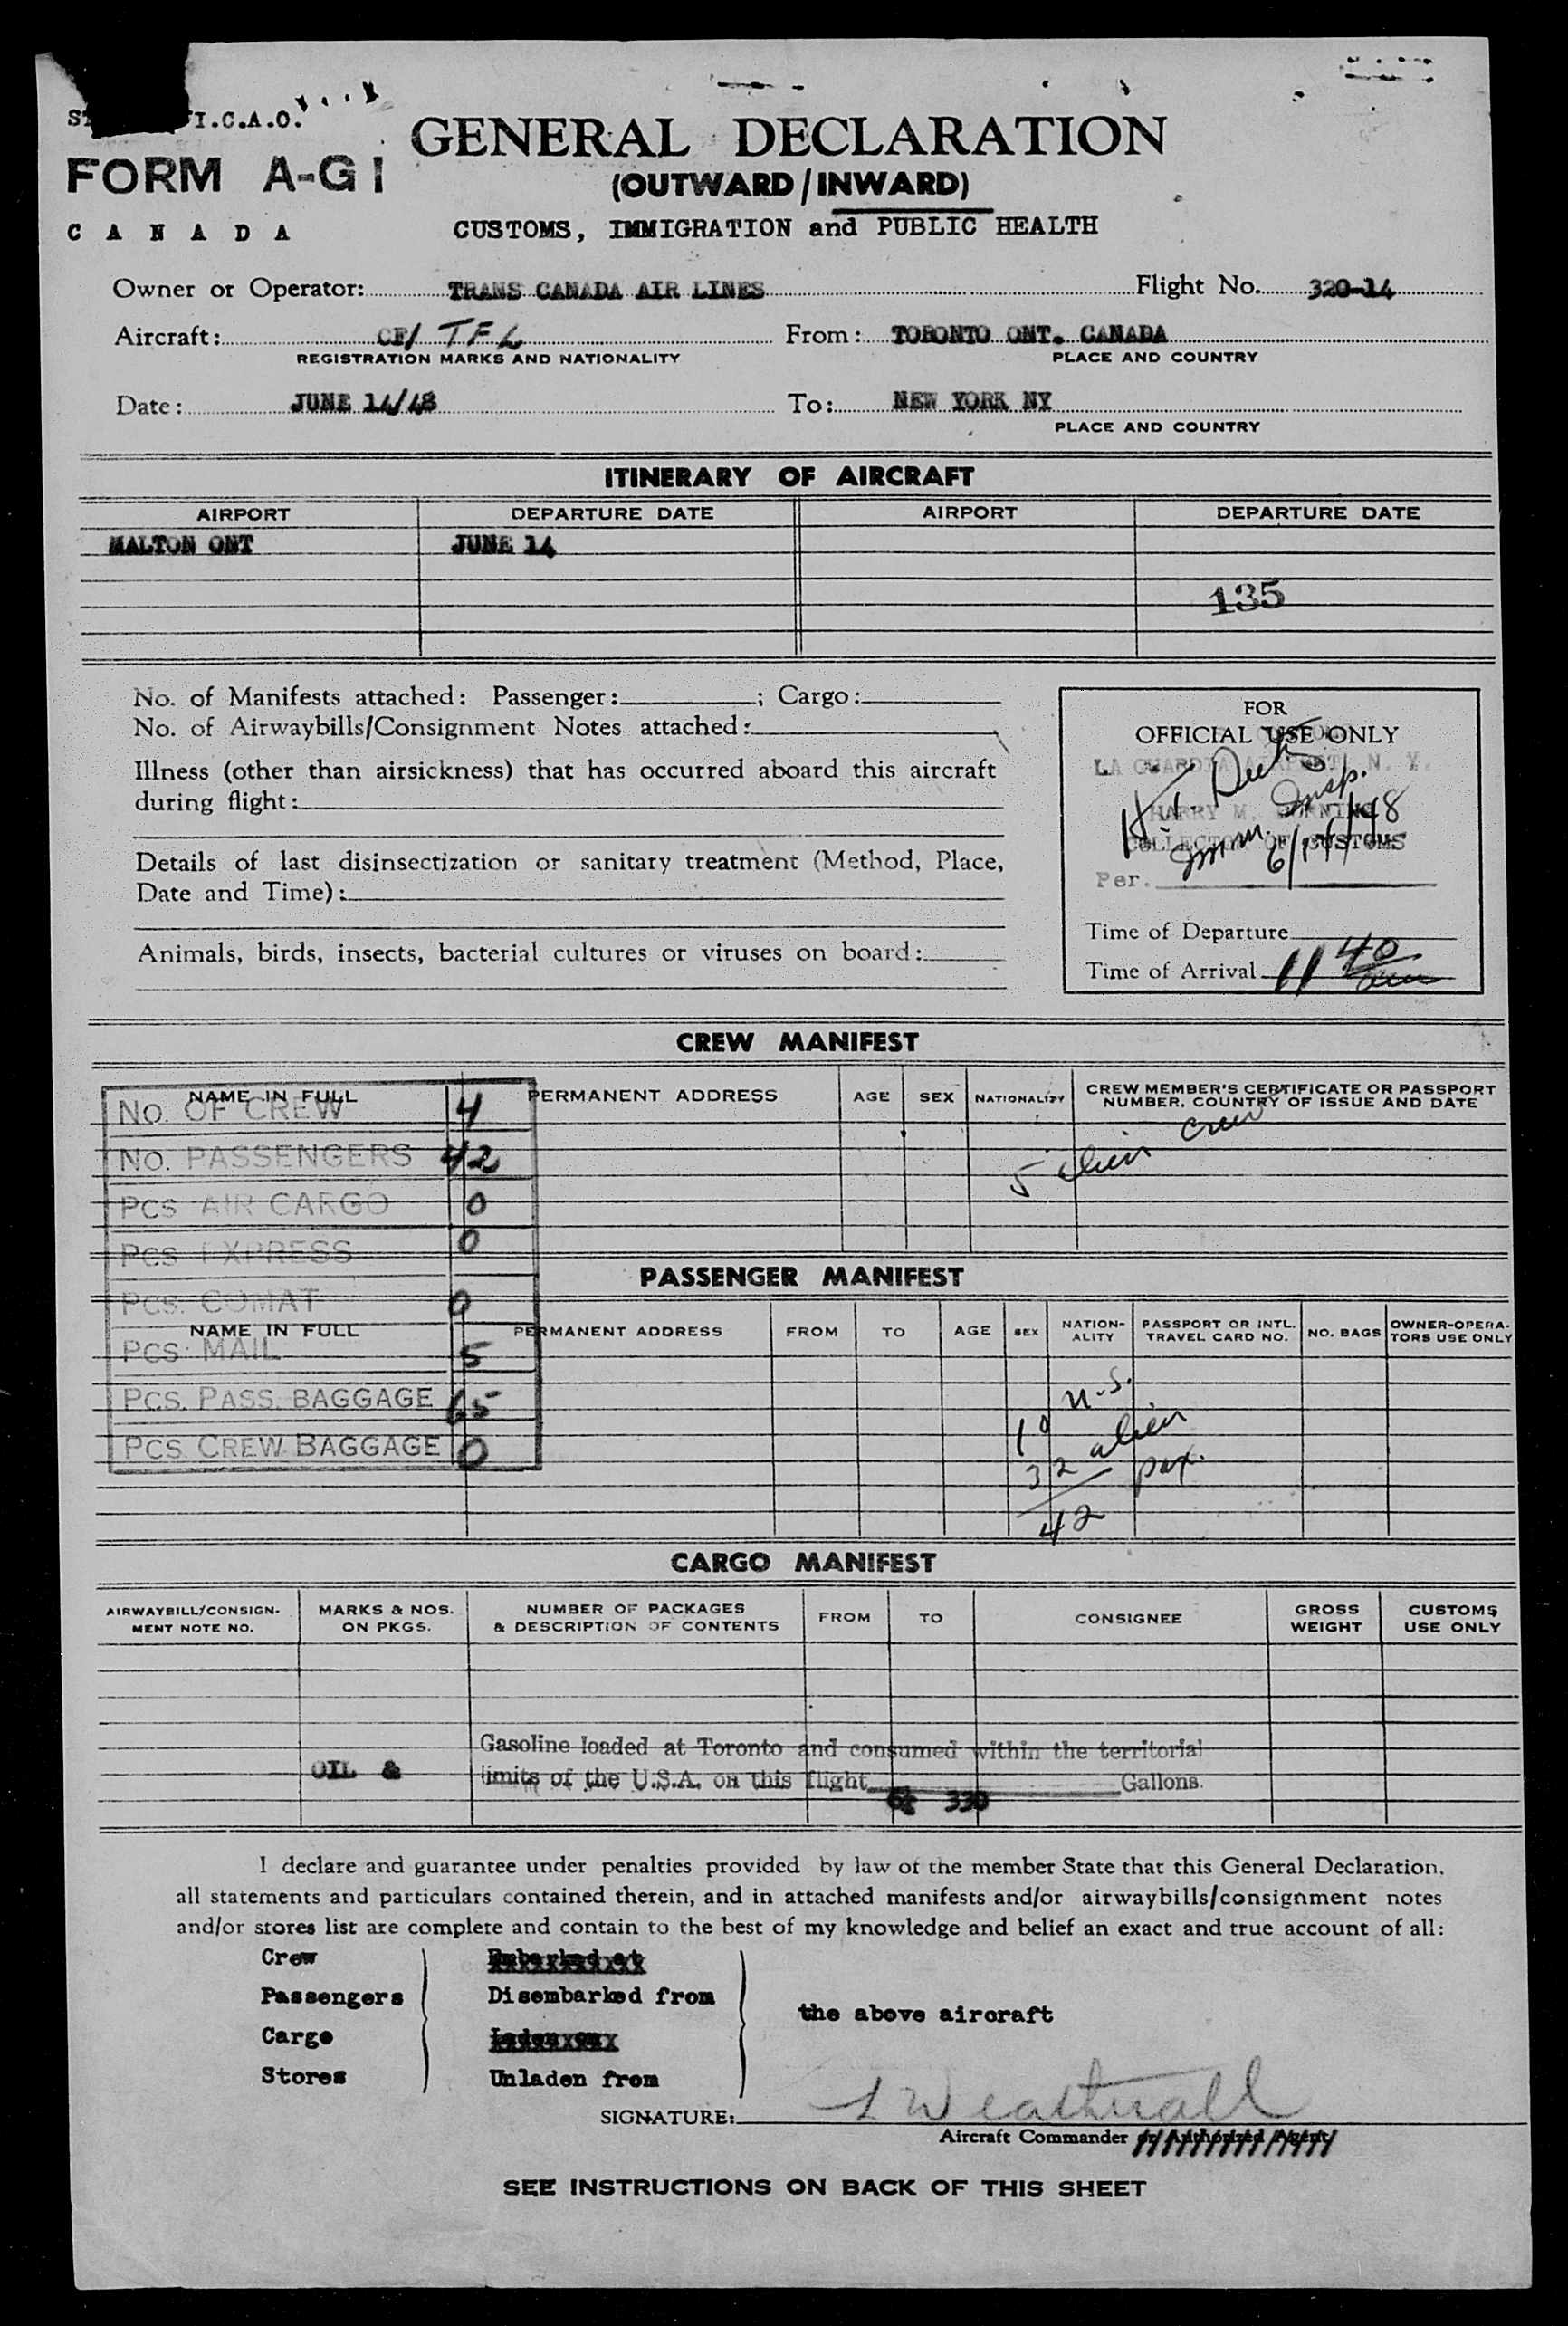 I.C.A.O.
FORM A-G1
CANADA
GENERAL DECLARATION
(OUTWARD/INWARD)
CUSTOMS, IMMIGRATION and PUBLIC HEALTH
Owner or Operator: TRANS CANADA AIR LINES Flight No. 320-14
Aircraft: CF/ TFL From: TORONTO ONT. CANADA
REGISTRATION MARKS AND NATIONALITY PLACE AND COUNTRY
Date: JUNE 14/48 To: NEW YORK NY
PLACE AND COUNTRY
ITINERARY OF AIRCRAFT
AIRPORT DEPARTURE DATE AIRPORT DEPARTURE DATE
MALTON ONT JUNE 14
135
No. of Manifests attached: Passenger: ; Cargo:
No. of Airwaybills/Consignment Notes attached:
Illness (other than airsickness) that has occurred aboard this aircraft
during flight:
Details of last disinsectization or sanitary treatment (Method, Place,
Date and Time):
Animals, birds, insects, bacterial cultures or viruses on board:
FOR
OFFICIAL USE ONLY
LA GUARDIA AIRPORT, N. Y.
HARRY M. DURNING
COLLECTOR OF CUSTOMS
Imm. Insp.
6/14/48
Per.
Time of Departure
Time of Arrival 11 40 am
CREW MANIFEST
NAME IN FULL PERMANENT ADDRESS AGE SEX NATIONALITY CREW MEMBER'S CERTIFICATE OR PASSPORT
NUMBER, COUNTRY OF ISSUE AND DATE
5 alien crew
No. OF CREW 4
No. PASSENGERS 42
Pcs AIR CARGO 0
Pcs EXPRESS 0
Pcs. COMAT 0
Pcs. MAIL 5
Pcs. PASS. BAGGAGE 65
Pcs CREW BAGGAGE 0
PASSENGER MANIFEST
NAME IN FULL PERMANENT ADDRESS FROM TO AGE SEX NATION-
ALITY PASSPORT OR INTL.
TRAVEL CARD NO. NO. BAGS OWNER-OPERA-
TORS USE ONLY
10 U.S.
32 alien
42 pax.
CARGO MANIFEST
AIRWAYBILL/CONSIGN-
MENT NOTE NO. MARKS & NOS.
ON PKGS. NUMBER OF PACKAGES
& DESCRIPTION OF CONTENTS FROM TO CONSIGNEE GROSS
WEIGHT CUSTOMS
USE ONLY
Gasoline loaded at Toronto and consumed within the territorial
OIL & limits of the U.S.A. on this flight Gallons.
330
I declare and guarantee under penalties provided by law of the member State that this General Declaration,
all statements and particulars contained therein, and in attached manifests and/or airwaybills/consignment notes
and/or stores list are complete and contain to the best of my knowledge and belief an exact and true account of all:
Crew Embarked at
Passengers Disembarked from
the above aircraft
Cargo Laden on
Stores Unladen from
SIGNATURE: Weatherall
Aircraft Commander or Authorized Agent
SEE INSTRUCTIONS ON BACK OF THIS SHEET